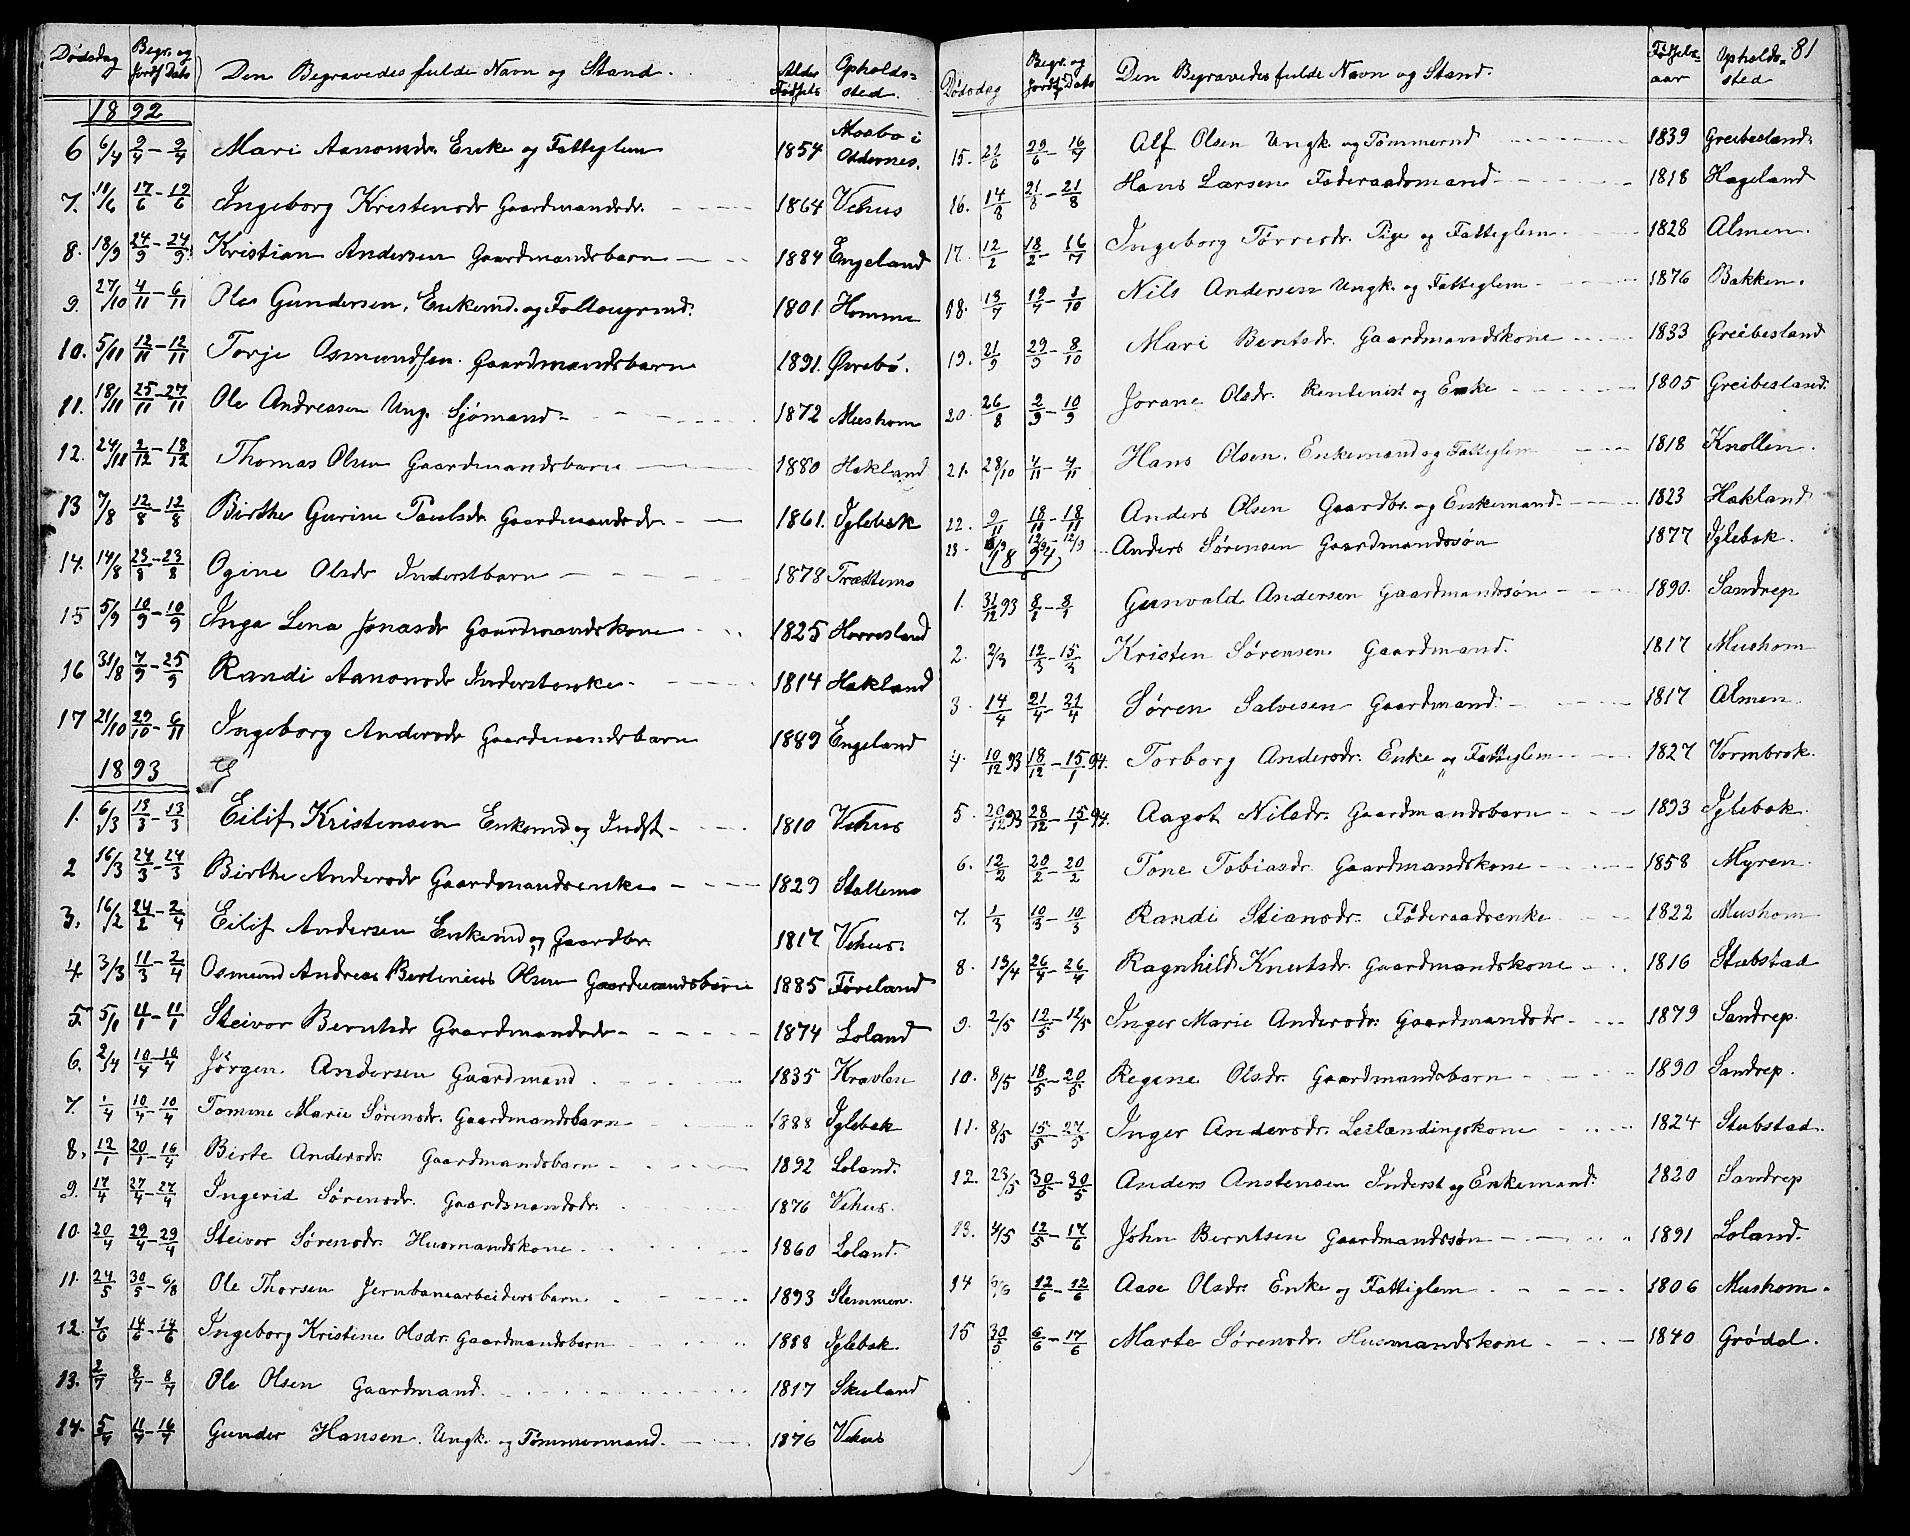 Dødsdag Begr. og Jordf. Dato Den Begravedes fulde Navn og Stand. Alder Fødsels Opholds-sted.
1892
6 6/4 9/4 - 9/4 Mari Aanonsdr. Enke og Fattiglem 1854 Mosbø i Oddernes.
7. 11/6 17/6 - 19/6 Ingeborg Kristensdr Gaardmandsdr. 1864 Vehus
8. 18/9 24/9 - 24/9 Kristian Andersen Gaardmandsbarn 1884 Engeland
9. 27/10 4/11 - 6/11 Ole Gundersen, Enkemd. og 1801 Homme
10. 5/11 12/11 - 12/11 Torje Osmundsen. Gaardmandsbarn 1891. Øvrebø.
11. 18/11 25/11 - 27/11 Ole Andreasen Ung. Sjømand 1872 Mushom
12. 24/11 2/12 - 18/12 Thomas Olsen Gaardmandsbarn 1880 Hakland
13 7/8 12/8 - 12/8 Birthe Gurine Paulsdr Gaardmandsdr. 1861. Iglebæk
14. 14/8 23/8 - 23/8 Ogine Olsdr Inderstbarn 1878 Trættemo
15 5/9 10/9 - 10/9 Inga Lena Jonasdr Gaardmandskone 1825 Horresland
16 31/8 7/9 - 25/9 Randi Aanonsdr Inderstenke. 1814 Hakland
17 21/10 29/10 - 6/11 Ingeborg Andersdr Gaardmandsbarn 1889 Engeland
1893
1. 6/3 13/3 - 13/3 Eilif Kristensen Enkemd og Indst 1810 Vehus
2 16/3 24/3 - 24/3 Birthe Andersdr Gaardmandsenke 1829 Stallemo
3. 16/2 24/2 - 2/4 Eilif Andersen Enkemd og Gaardbr. 1817 Vehus.
4 3/3 11/3 - 2/4 Osmund Andreas Bertenius Olsen Gaardmandsbarn 1885 Føreland
5. 5/1 11/1 - 11/1 Steivor Berntsdr Gaardmandsdr 1874 Loland
6. 2/4 10/4 - 10/4 Jørgen Andersen Gaardmand 1835 Kravlen
7. 1/4 10/4 - 10/4 Tomine Marie Sørensdr. Gaardmandsbarn 1888 Iglebæk
8. 12/1 20/1 - 16/4 Birte Andersdr. Gaardmandsbarn 1892 Loland.
9. 17/4 27/4 - 27/4 Ingerid Sørensdr. Gaardmandsdr. 1876 Vehus.
10. 20/4 29/4 - 29/4 Steivor Sørensdr. Husmandskone 1860 Loland.
11. 24/5 30/5 - 6/8 Ole Thorsen Jernbanearbeidersbarn 1893 Stemmen.
12. 7/6 14/6 - 14/6 Ingeborg Kristine Olsdr. Gaardmandsbarn 1888 Iglebæk.
13. 2/7 8/7 - 8/7 Ole Olsen Gaardmand. 1817 Skuland
14. 5/7 11/7 - 16/7 Gunder Hansen. Ungk. og Tømmermand. 1876 Vehus
81
Dødsdag Begr. og Jordf. Dato Den Begravedes fulde Navn og Stand. Fødsels-aar Opholds-sted
15. 22/6 29/6 - 16/7 Alf Olsen Ungk. og Tømmermd 1839 Greibesland.
16. 14/8 21/8 - 21/8 Hans Larsen Føderaadsmand 1818 Hageland
17. 12/2 18/2 - 16/7 Ingeborg Tørresdr. Pige og Fattiglem. 1828 Almen.
18. 13/7 19/7 - 1/10 Nils Andersen Ungk. og Fattiglem 1876 Bakken.
19. 21/9 29/9 - 8/10 Mari Berntsdr. Gaardmandskone 1833 Greibesland
20. 26/8 2/9 - 10/9 Jorane Olsdr. Rentenist og Enke 1805 Greibesland.
21. 28/10 4/11 - 4/11 Hans Olsen. Enkemand og Fattiglem 1818 Knollen.
22. 9/11 18/11 - 18/11 Anders Olsen Gaardbr. og Enkemand. 1823 Hakland
23. 12/9 - 12/9 Anders Sørensen Gaardmandssøn 1877 Iglebæk.
1894
1. 31/12 93 8/1 - 8/1 Gunvald Andersen Gaardmandssøn 1890. Sandrep
2. 2/3 12/3 - 15/3 Kristen Sørensen Gaardmand. 1817 Mushom
3. 14/4 21/4 - 21/4 Søren Salvesen Gaardmand. 1817 Almen.
4. 10/12 93 18/12 - 15/1 94. Torborg Andersdr. Enke og Fattiglem 1827 Vormbrok.
5. 20/12 93 28/12 - 15/1 94. Aagot Nilsdr. Gaardmandsbarn 1893 Iglebæk.
6. 12/2 20/2 - 20/2 Tone Tobiasdr. Gaardmandskone 1858 Myren.
7. 1/3 10/3 - 10/3 Randi Stiansdr. Føderaadsenke 1822 Mushom
8. 19/4 26/4 - 26/4 Ragnhild Knutsdr. Gaardmandskone 1816 Stubstad
9. 2/5 12/5 - 12/5 Inger Marie Andersdr. Gaardmandsdr. 1879 Sandrep.
10. 8/5 18/5 - 20/5 Regine Olsdr. Gaardmandsbarn 1890 Sandrep.
11. 8/5 15/5 - 27/5 Inger Andersdr. Leilændingskone 1824 Stubstad.
12. 23/5 30/5 - 30/5 Anders Anstensen Inderst og Enkemand. 1820 Sandrep
13. 4/5 12/5 - 17/6 John Berntsen Gaardmandssøn 1891 Loland.
14 5/6 12/6 - 12/6 Aase Olsdr. Enke og Fattiglem 1806 Mushom.
15 30/5 6/6 - 17/6 Marte Sørensdr. Husmandskone 1840 Grødal.